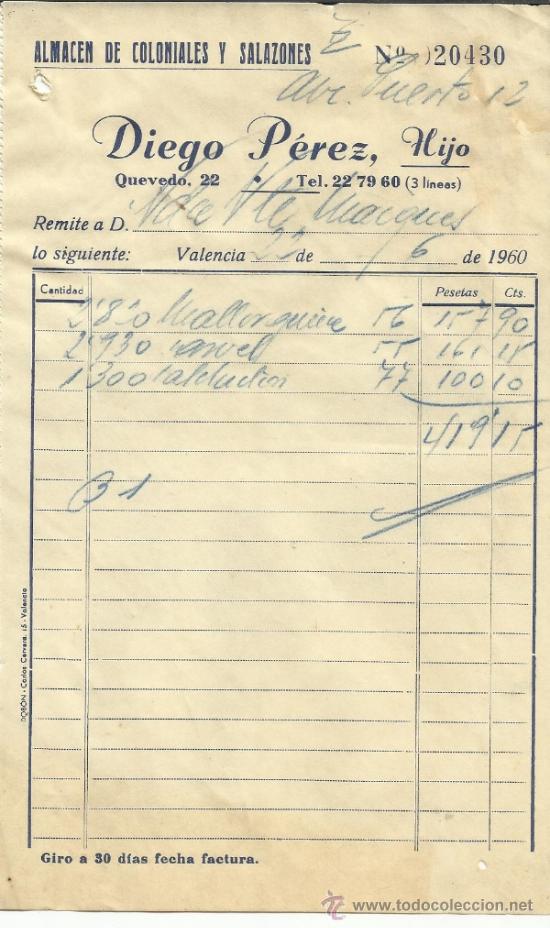 ALMACEN DE COLONIALES Y SALAZONES Nº 020430
Avc. Puerto 12
Diego Pérez, Hijo
Quevedo, 22 • Tel. 22 79 60 (3 líneas)
Remite a D. Vda Vte Marques
lo siguiente: Valencia 22 de 6 de 1960
Cantidad Pesetas Cts.
2'820 Mallorquina 56 157 90
2'930 55 161 15
1'300 Salchichon 77 100 10
419'15
B 1
Giro a 30 días fecha factura.
DOBÓN - Carlos Cervera, 15 - Valencia
www.todocoleccion.net